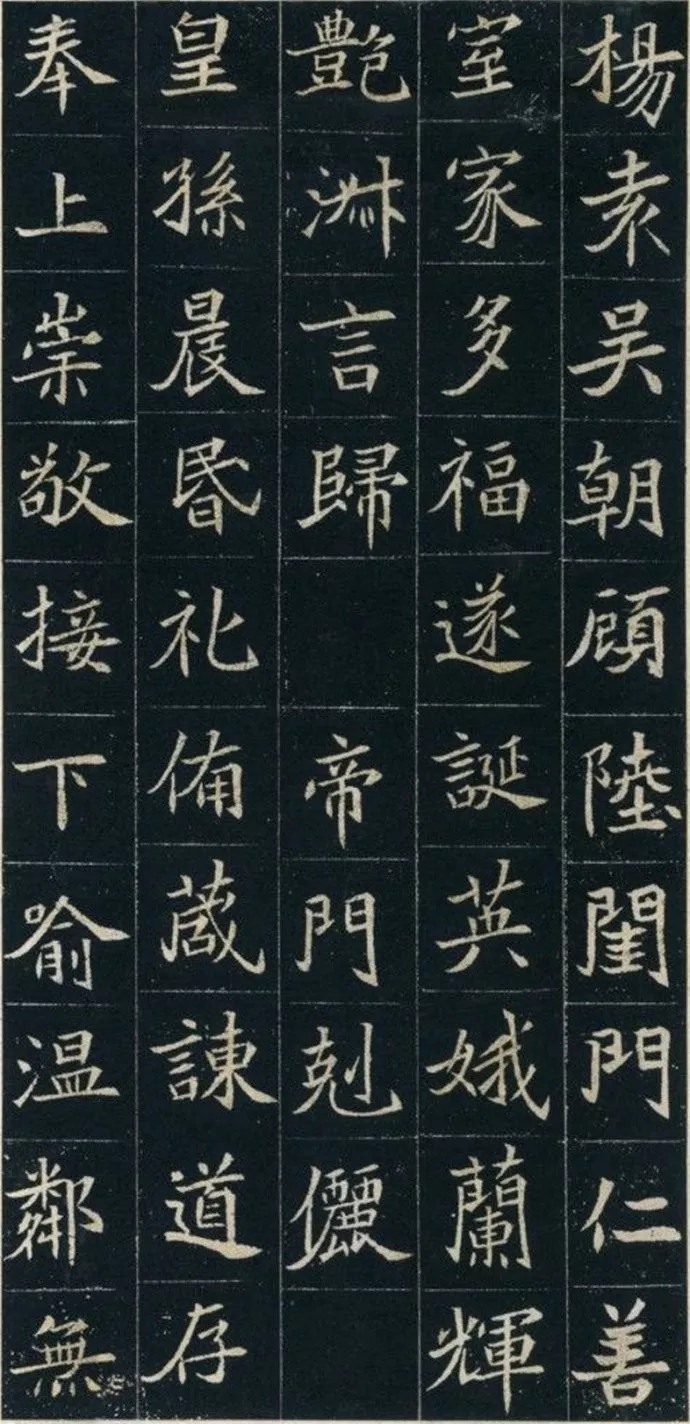 楊袁吴朝顧陸閨門仁善
室家多福遂誕英娥蘭輝
艶淋言歸帝門剋儷
皇孫晨昏礼俻葴諫道存
奉上崇敬接下喻温鄰無